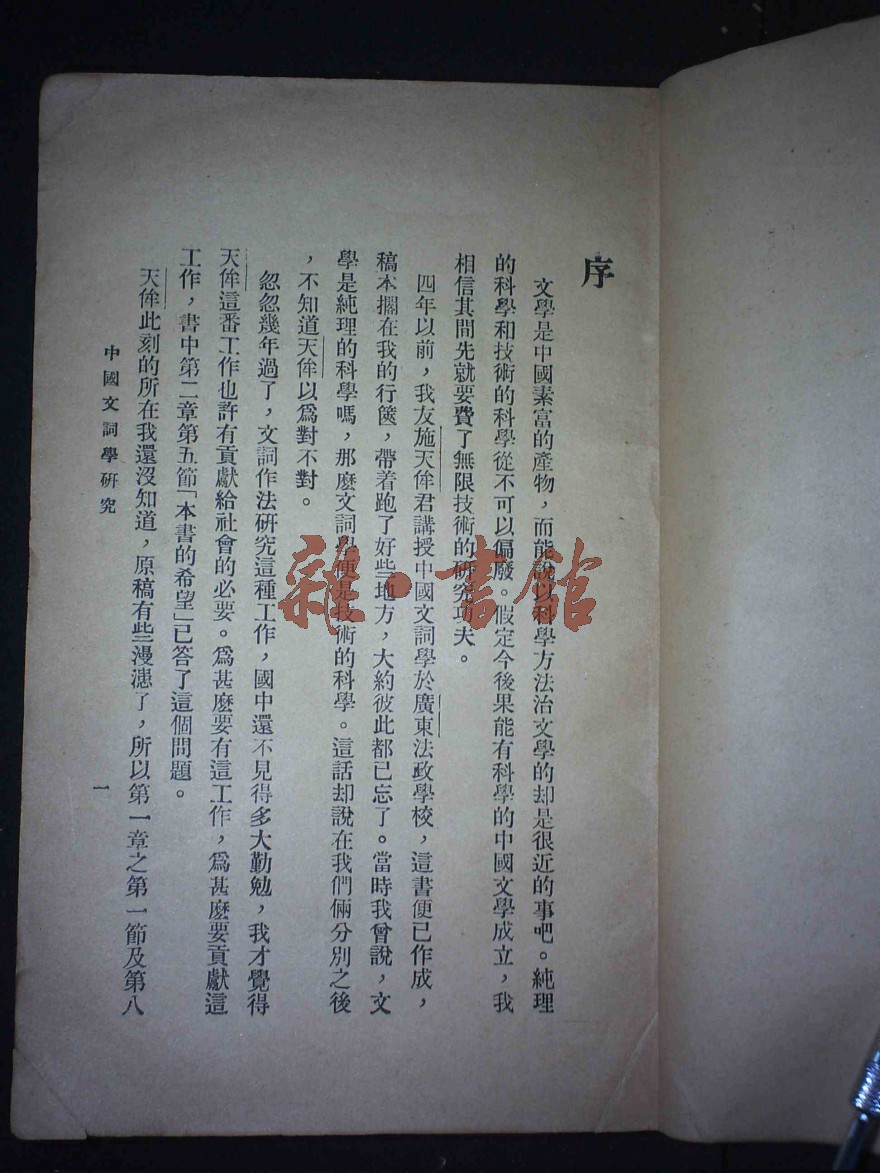 序
文學是中國素富的產物，而能說以科學方法治文學的却是很近的事吧。純理
的科學和技術的科學從不可以偏廢。假定今後果能有科學的中國文學成立，我
相信其間先就要費了無限技術的研究功夫。
四年以前，我友施天侔君講授中國文詞學於廣東法政學校，這書便已作成，
稿本擱在我的行篋，帶着跑了好些地方，大約彼此都已忘了。當時我曾說，文
學是純理的科學嗎，那麽文詞學便是技術的科學。這話却說在我們倆分別之後
，不知道天侔以爲對不對。
忽忽幾年過了，文詞作法研究這種工作，國中還不見得多大勤勉，我才覺得
天侔這番工作也許有貢獻給社會的必要。爲甚麽要有這工作，爲甚麽要貢獻這
工作，書中第二章第五節「本書的希望」已答了這個問題。
天侔此刻的所在我還沒知道，原稿有些漫漶了，所以第一章之第一節及第八
中國文詞學研究
一
雜·書館